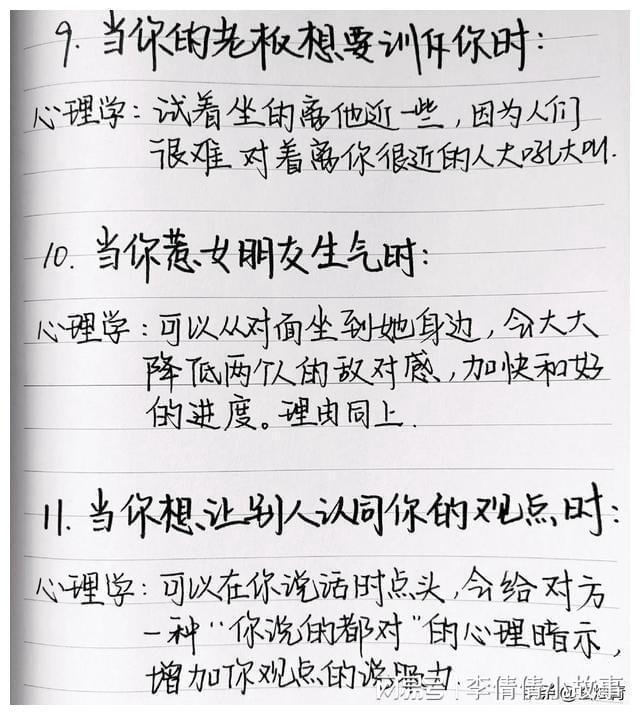 9. 当你的老板想要训斥你时：
心理学：试着坐的离他近一些，因为人们
很难对着离你很近的人大吼大叫.
10. 当你惹女朋友生气时：
心理学：可以从对面坐到她身边，会大大
降低两个人的敌对感，加快和好
的进度。理由同上.
11. 当你想让别人认同你的观点时：
心理学：可以在你说话时点头，会给对方
一种“你说的都对”的心理暗示，
增加你观点的说服力.
搜狐号@李倩倩小故事